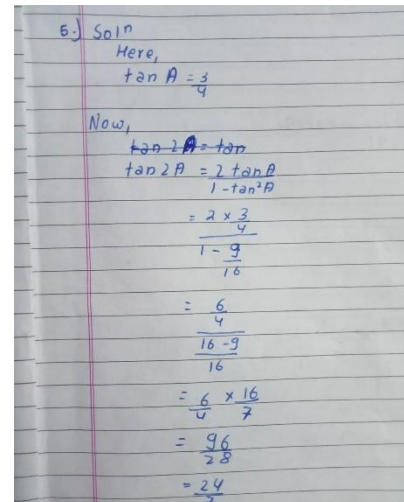 5.) Soln
Here,
tan A = 3/4
Now,
tan 2A = tan
tan 2A = 2 tan A / 1 - tan²A
= 2 × 3/4 / 1 - 9/16
= 6/4 / 16 - 9/16
= 6/4 × 16/7
= 96/28
= 24